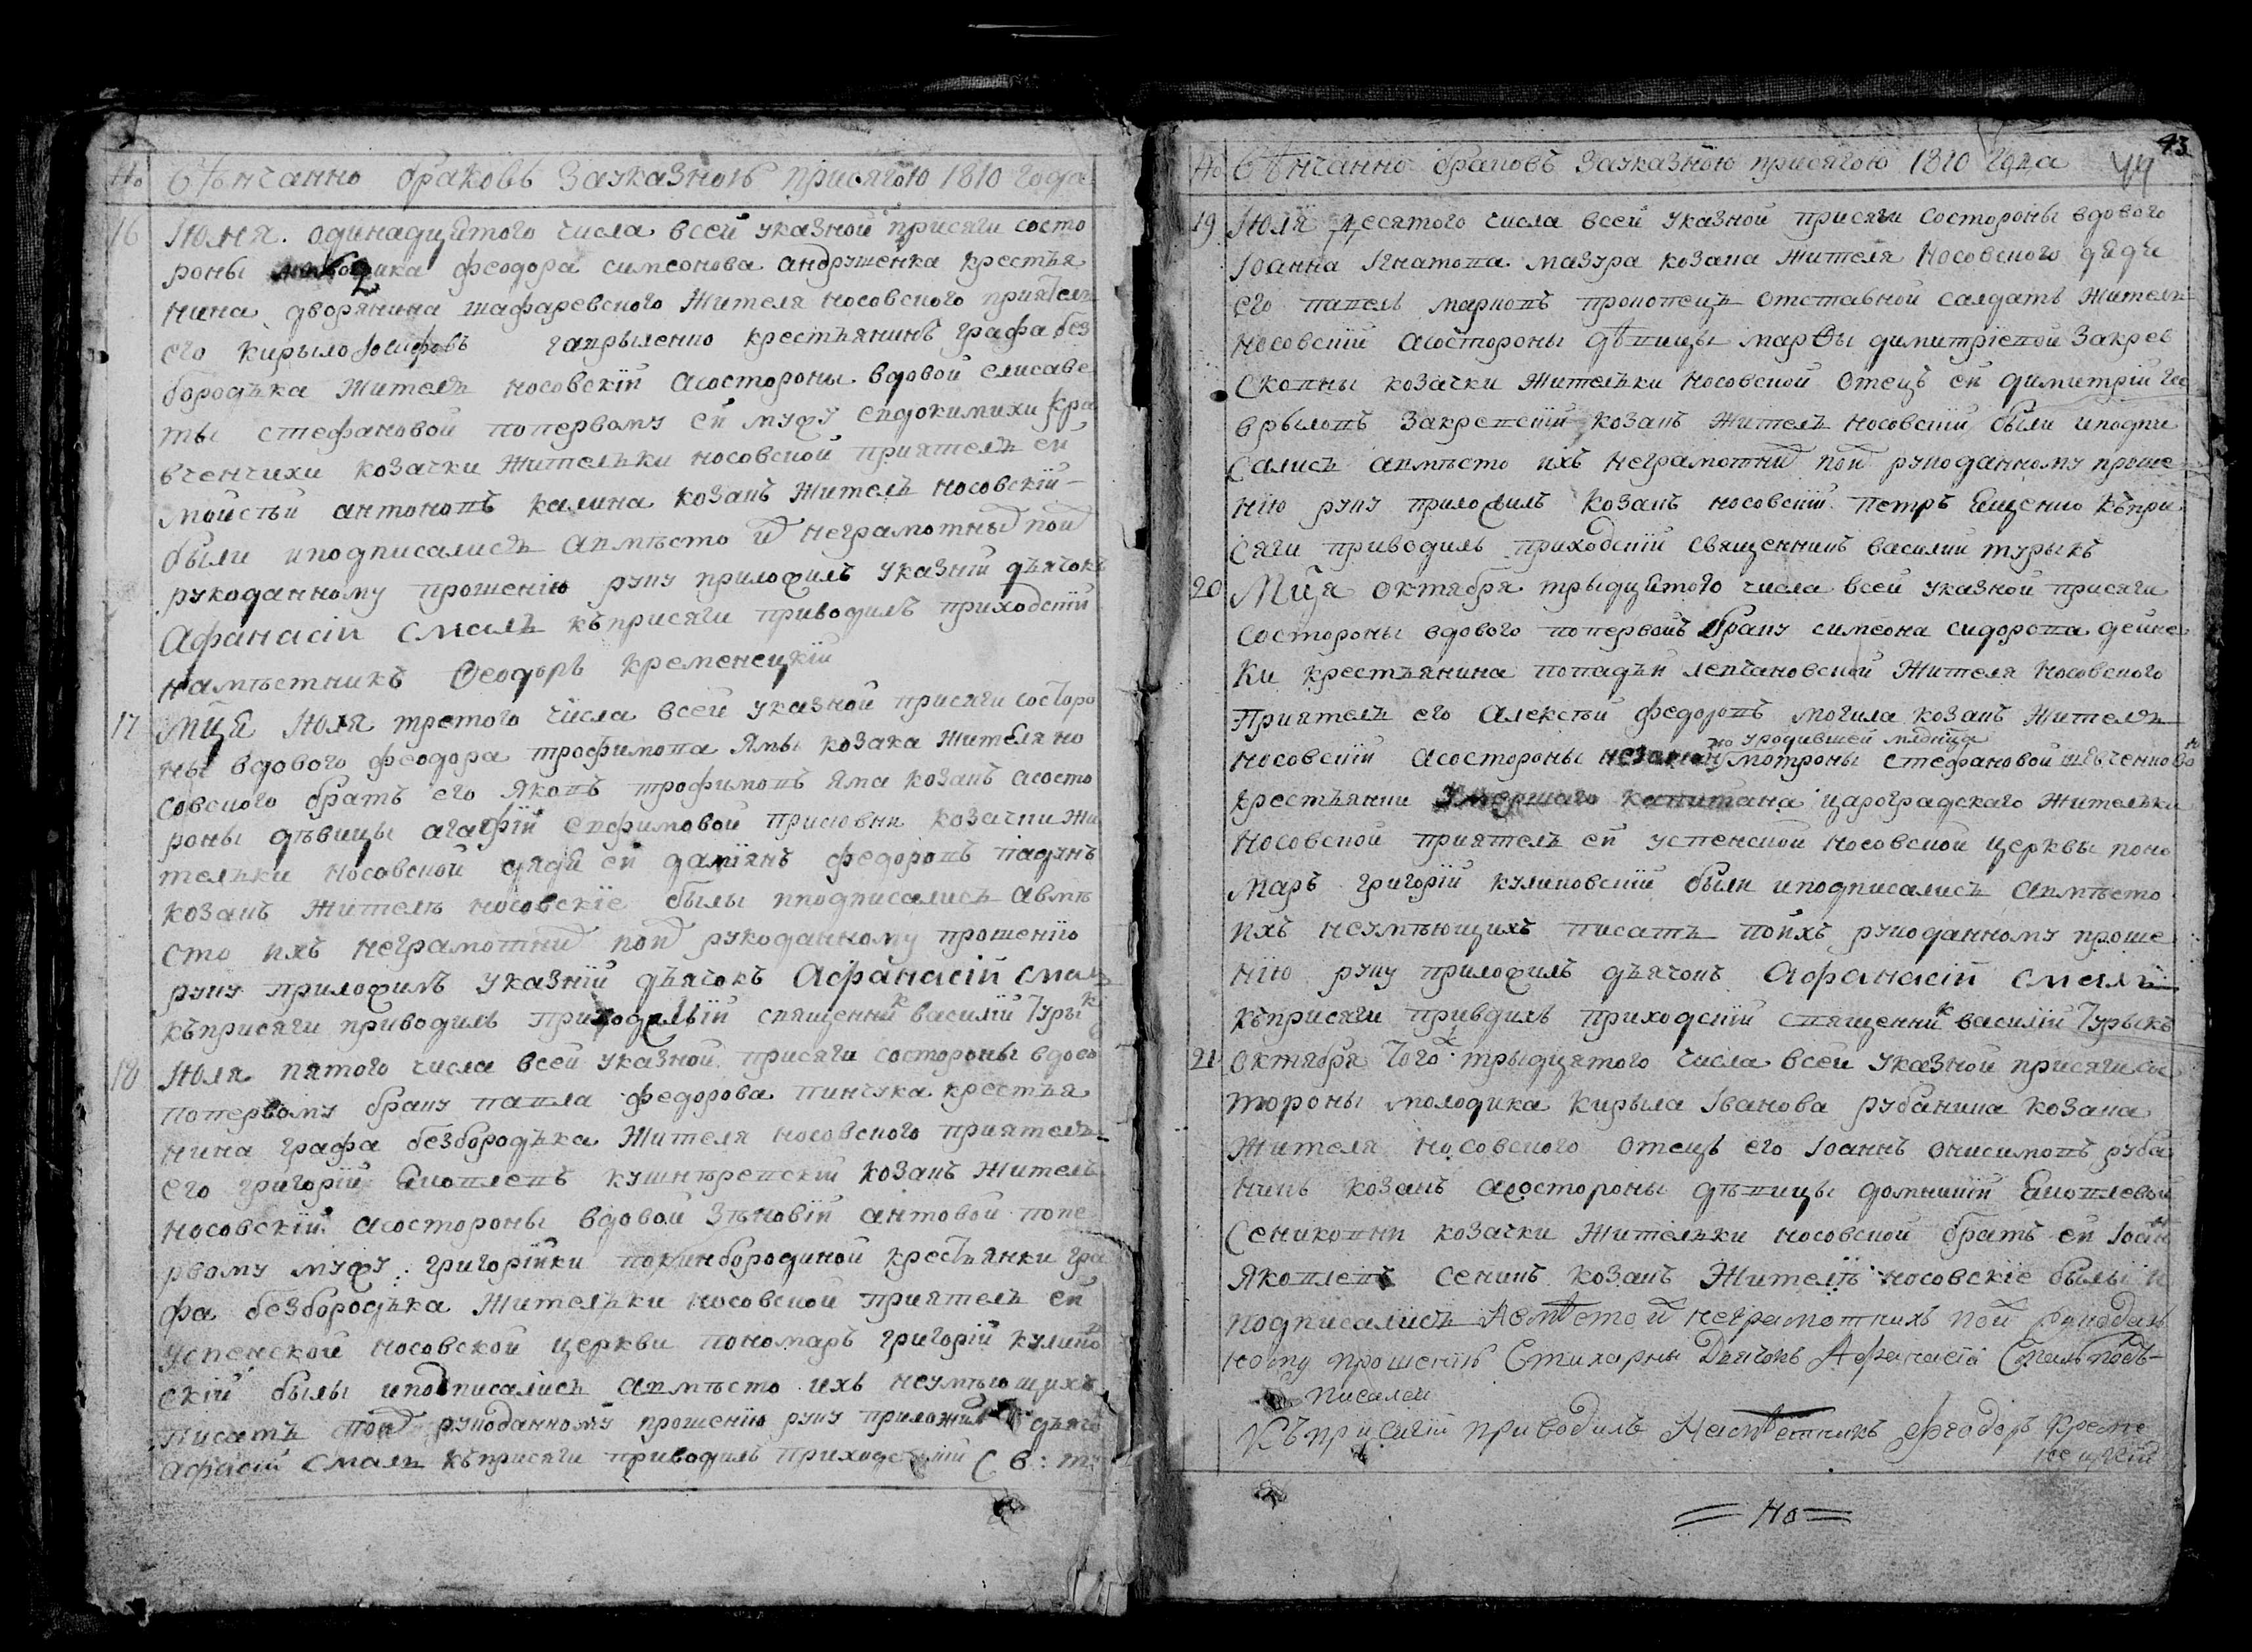 No Вѣнчанно браковъ Зауказною присягою 1810 года
16 Июня. одинадцятого числа всей указной присяги состо
роны феодора симеонова андрушенка крестья
нина дворянина шафаревского Жителя носовского приятель
его кирыло Іосифовъ гаврыленко крестьянинъ графа без
бородька жителъ носовскій асостороны вдовой елисаве
ты стефановой попервому ей мужу евдокимихи кра
вченчихи козачки жителъки носовской приятелъ ей
мойсѣй антоновъ калина козакъ жителъ носовскій
были иподписалисъ авмѣсто и неграмотных по их
рукоданному прошенію руку приложилъ указній дъячокъ
Афанасій Смалъ къприсяги приводилъ приходскій
намѣстникъ Ѳеодоръ кременецкій
17 Мця Июля третого числа всей указной присяги состоро
ны вдового феодора трофимова Ямы козака жителя но
совского братъ его яковъ трофимовъ яма козакъ асосто
роны дѣвицы агафій евфимовой козачки жи
телъки носовской дядя ей даміянъ федоровъ
козакъ жителъ носовскіе былы иподписалисъ авмѣ
сто ихъ неграмотных по их рукоданному прошенію
руку приложилъ указній дъячокъ Афанасій Смалъ
къприсяги приводилъ приходскій священникъ василій Турыкъ
18 Июля пятого числа всей указной присяги состороны вдово
попервому браку павла федорова пинчука крестъя
нина графа безбородъка жителя носовского приятелъ
его григорій яковлевъ кушнѣревскій козакъ жителъ
носовскій асостороны вдовой зѣновій антовой попе
рвому мужу григорійки крестьянки гра
фа безбородъка жителъки носовской приятелъ ей
успенской носовской церкви пономаръ григорій кулико
скій былы иподписалисъ авмѣсто ихъ неумѣющихъ
писатъ по их рукоданному прошенію руку приложил дъячо
Смалъ къприсяги приводилъ приходскій С в: ту
43
No Вѣнчанно браковъ Зауказною присягою 1810 года 44
19 Июля десятого числа всей указной присяги состороны вдового
Іоанна Игнатова мазура козака жителя носовского дядъ
его павелъ марковъ отставной салдатъ жителъ
носовскій асостороны дѣвицы марѳы димитріевой Закрев
сковны козачки жителъки носовской отецъ ей димитрій га
врыловъ Закревскій козакъ жителъ носовскій были иподпи
салисъ авмѣсто ихъ неграмотних по их рукоданному проше
нію руку приложилъ козакъ носовскій петръ къпри
сяги приводилъ приходскій священникъ василий турыкъ
20 Мця октября трыдцятого числа всей указной присяги
состороны вдового попервомъ браку симеона сидорова дейне
ки крестъянина попадъи жителя носовского
приятелъ его алексѣй федоровъ могила козакъ жителъ
носовскій асостороны мотроны стефановой шевченково
крестьянки умершаго капитана цароградскаго жителъки
носовской приятелъ ей успенской носовской церквы поно
маръ григорій куликовскій были иподписалисъ авмѣсто
ихъ неумѣющихъ писатъ поихъ рукоданному проше
нію руку приложилъ дъячокъ Афанасій Смалъ
къприсяги привдилъ приходскій священникъ василій Турыкъ
21 октября того ж трыдцятого числа всей указной присяги сос
тороны молодика кирыла Іванова рубанина козака
жителя носовского отецъ его Іоаннъ онисимовъ руба
нинъ козакъ асостороны дѣвицы домникій яковлевой
сениковни козачки жителъки носовской братъ ей Іоан
яковлевъ сеникъ козакъ жителѣ носовскіе былы и
подписалисъ Авмѣсто их неграмотнихъ по их рукодан
ному прошенію Стихарны Дьячокъ Афанасій Смалъ подъ-
писался
Къ присягій приводилъ Намѣстникъ Ѳеодоръ Креме
нецкій
= No =